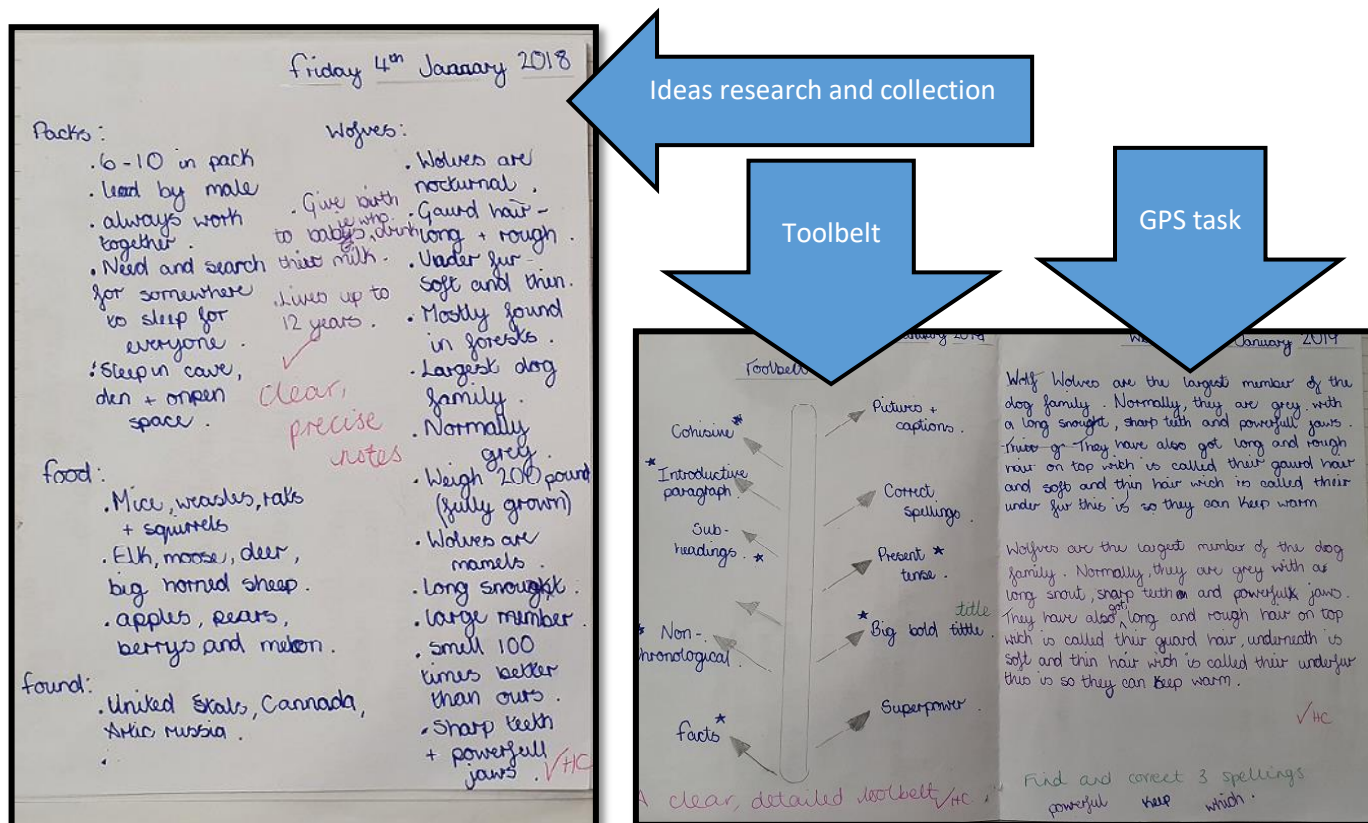 Ideas research and collection
Toolbelt
GPS task
Friday 4th January 2018
Packs:
. 6-10 in pack
. lead by male
. always work
together.
. Need and search
for somewhere
to sleep for
everyone.
. Sleep in cave,
den + onpen
space.
food:
. Mice, weasles, rats
+ squirrels
. Elk, moose, deer,
big horned sheep.
. apples, pears,
berrys and melon.
found:
. United Stats, Cannada,
Artic russia.
.
Wolves:
. Give birth
to babys, who drink
thier milk.
. Lives up to
12 years.
clear,
precise
notes
. Wolves are
nocturnal.
. Gaurd hair -
long + rough.
. Under fur -
soft and thin.
. Mostly found
in forests.
. Largest dog
family.
. Normally
grey.
. Weigh 200 pound
(fully grown)
. Wolves are
mamels.
. Long snought.
. large member.
. Smell 100
times better
than ours.
. Sharp teeth
+ powerfull
jaws. ✓HC
Toolbelt
Cohisive *
* Introductive
paragraph.
Sub-
headings. *
* Non-
hronological.
facts *
Pictures +
captions.
Correct
spellings.
Present *
tense.
title
* Big bold tittle.
Superpower.
A clear, detailed toolbelt ✓HC.
January 2019
Wolf Wolves are the largest member of the
dog family. Normally, they are grey with
a long snought, sharp teeth and powerfull jaws.
They have also got long and rough
hair on top wich is called thier gaurd hair
and soft and thin hair wich is called their
under fur this is so they can keep warm
Wolfves are the largest member of the dog
family. Normally, they are grey with a
long snout, sharp teeth and powerfull jaws.
They have also got long and rough hair on top
wich is called thier guard hair, underneath is
soft and thin hair wich is called their underfur
this is so they can keep warm.
✓HC
Find and correct 3 spellings
powerful keep which.